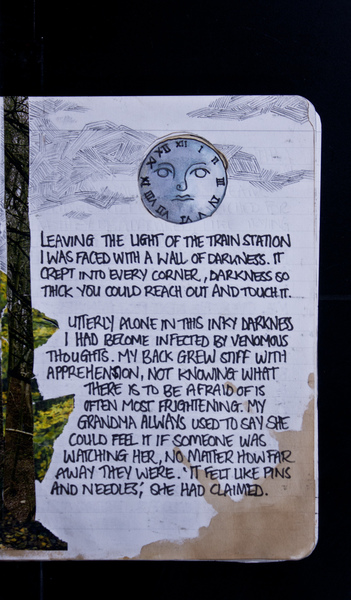 XII
I
II
III
IV
V
VI
VII
VIII
IX
X
XI
LEAVING THE LIGHT OF THE TRAIN STATION
I WAS FACED WITH A WALL OF DARKNESS. IT
CREPT INTO EVERY CORNER, DARKNESS SO
THICK YOU COULD REACH OUT AND TOUCH IT.
UTTERLY ALONE IN THIS INKY DARKNESS
I HAD BECOME INFECTED BY VENOMOUS
THOUGHTS. MY BACK GREW STIFF WITH
APPREHENSION, NOT KNOWING WHAT
THERE IS TO BE AFRAID OF IS
OFTEN MOST FRIGHTENING. MY
GRANDMA ALWAYS USED TO SAY SHE
COULD FEEL IT IF SOMEONE WAS
WATCHING HER, NO MATTER HOW FAR
AWAY THEY WERE. 'IT FELT LIKE PINS
AND NEEDLES', SHE HAD CLAIMED.